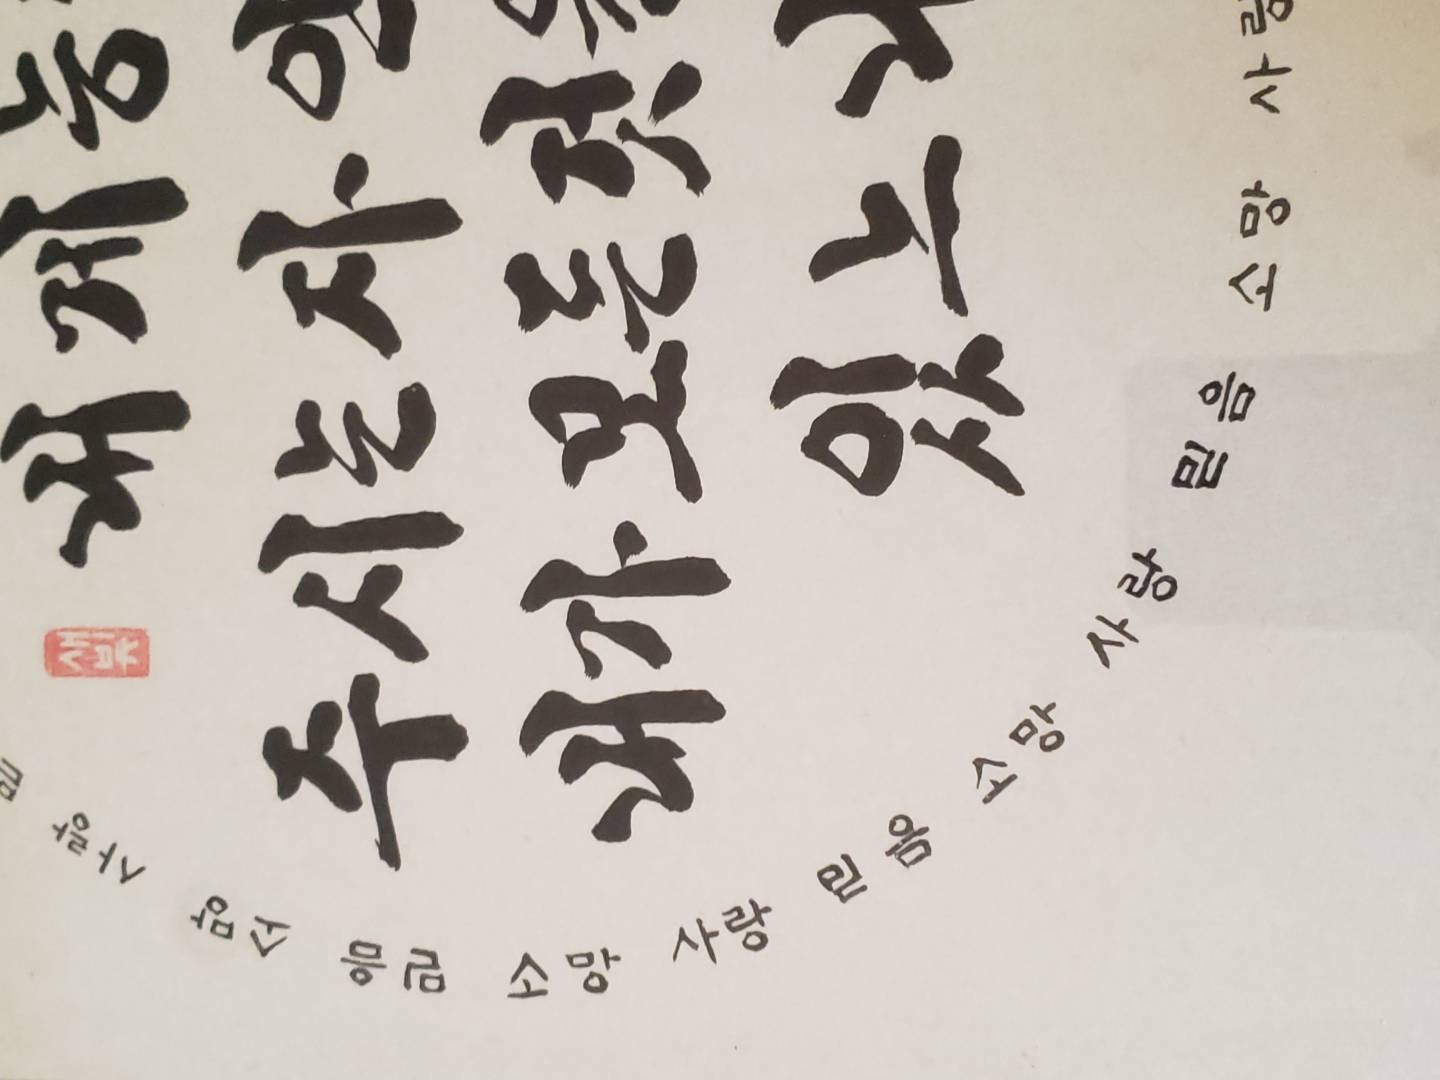 내게 능
주시는 자 안
내가 모든 것을
있느니
소망 사랑 믿음 소망 사랑 믿음 소망 사랑
믿음 소망 사랑 믿